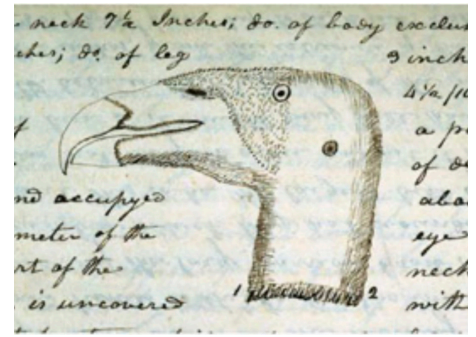 neck 7½ Inches; do. of body exclu
ches; do. of leg 3 inch
4½/10
of a p
of
nd accupyed abo
meter of the eye
rt of the neck
is uncovered with
1 2